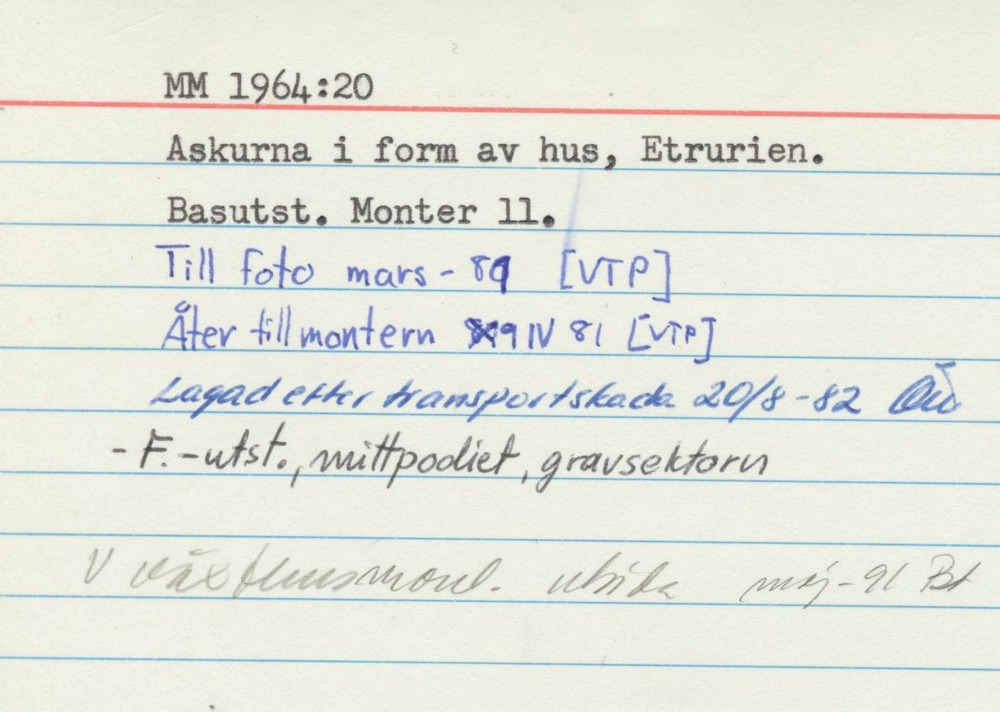 MM 1964:20
Askurna i form av hus, Etrurien.
Basutst. Monter 11.
Till foto mars - 81 [VTP]
Åter till montern 9 IV 81 [VTP]
Lagad efter transportskada 20/8-82
- F.-utst., mittpodiet, gravsektorn
V växthusmont. maj-91